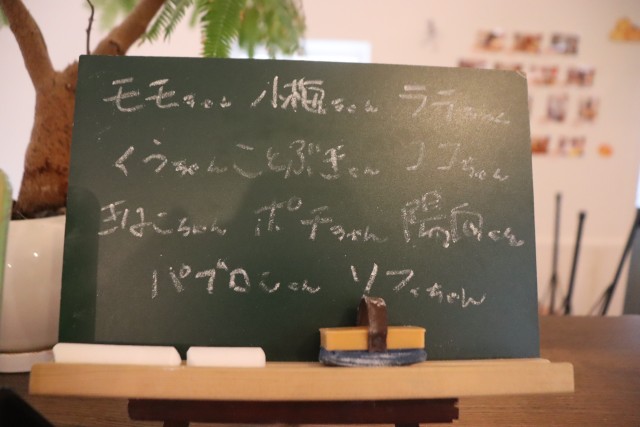 モモちゃん 小梅ちゃん ララちゃん
くうちゃん ことぶきくん ココちゃん
きはこちゃん ポチちゃん 陽向くん
パブロくん ソフィちゃん